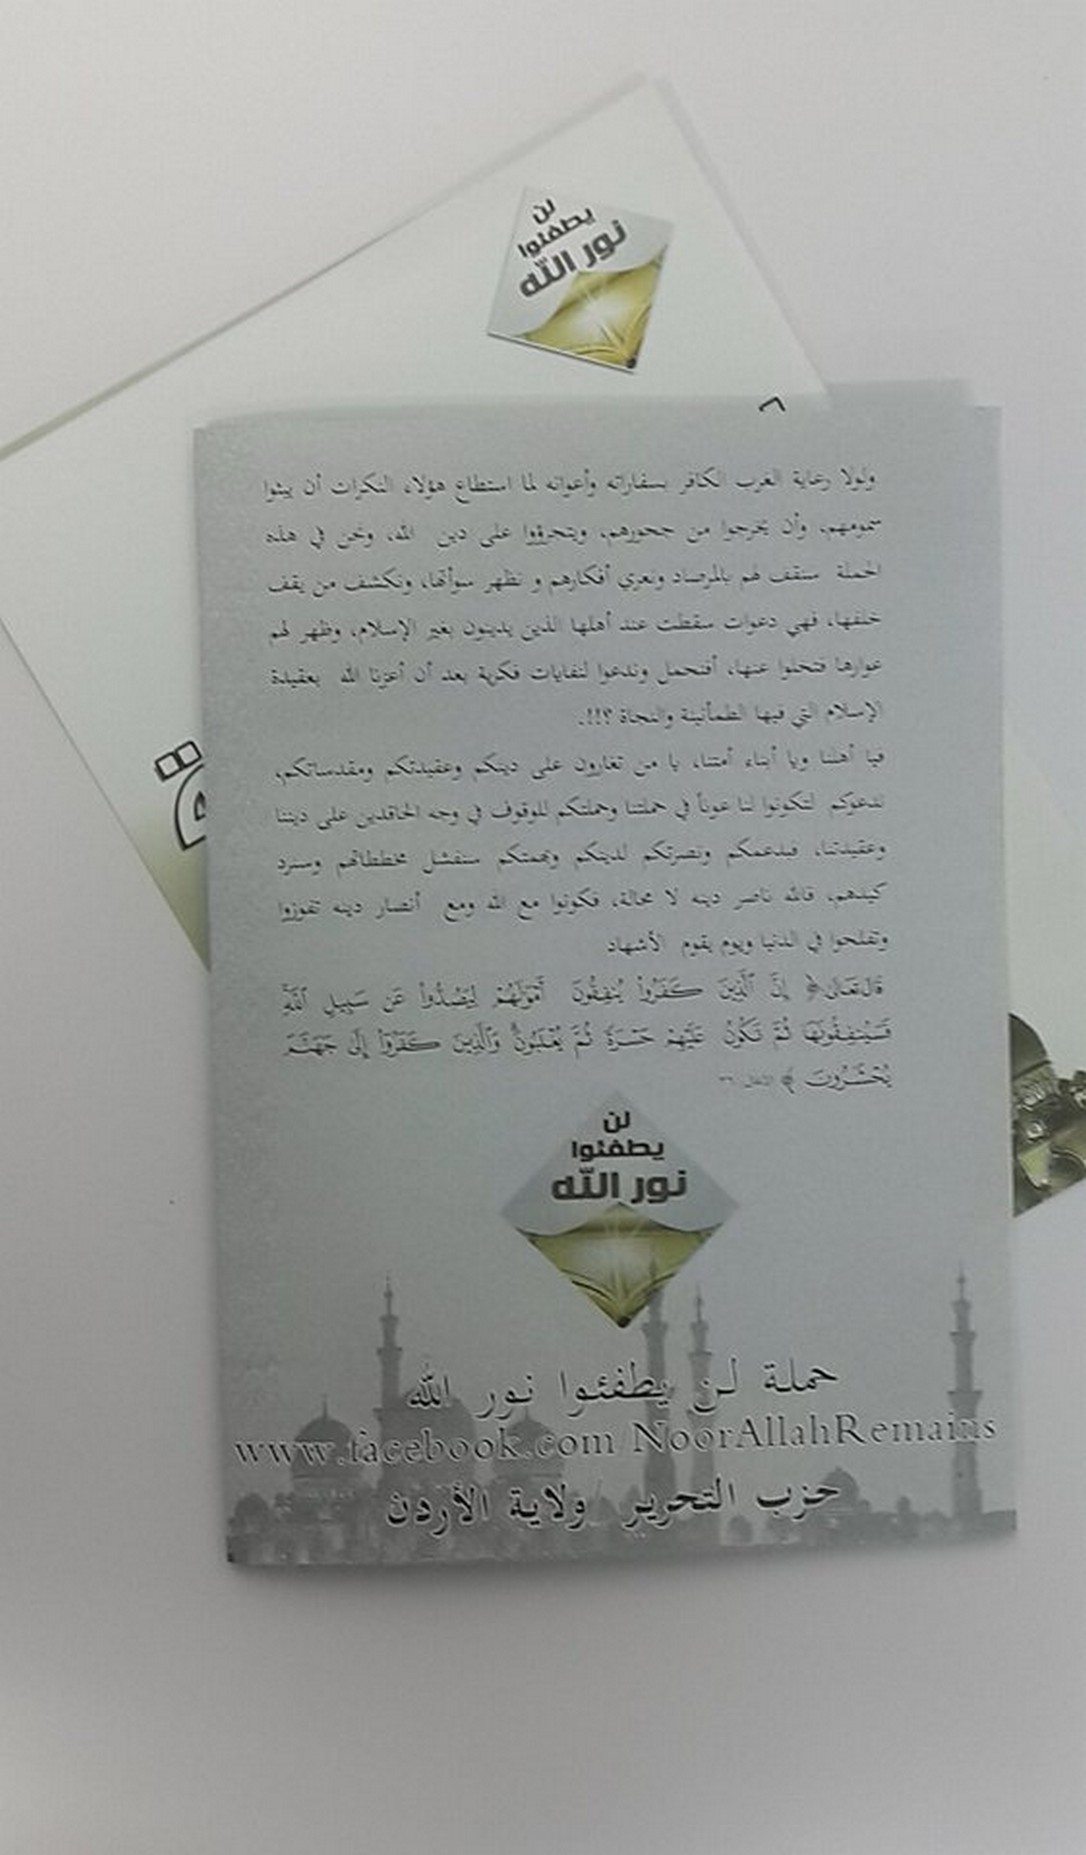 لن
يطفئوا
نور الله
ولولا رعاية الغرب الكافر بسفاراته وأعوانه لما استطاع هؤلاء النكرات أن يبثوا
سمومهم، وأن يخرجوا من جحورهم، ويتجرؤوا على دين الله، ونحن في هذه
الحملة سنقف لهم بالمرصاد ونعري أفكارهم و نظهر سوأتها، ونكشف من يقف
خلفها، فهي دعوات سقطت عند أهلها الذين يدينون بغير الإسلام، وظهر لهم
عوارها فتخلوا عنها، أفنحمل وندعوا لنفايات فكرية بعد أن أعزنا الله بعقيدة
الإسلام التي فيها الطمأنينة والنجاة ؟!!.
فيا أهلنا ويا أبناء أمتنا، يا من تغارون على دينكم وعقيدتكم ومقدساتكم،
ندعوكم لتكونوا لنا عوناً في حملتنا وحملتكم للوقوف في وجه الحاقدين على ديننا
وعقيدتنا، فبدعمكم ونصرتكم لدينكم وبهمتكم سنفشل مخططاتهم وسنرد
كيدهم، فالله ناصر دينه لا محالة، فكونوا مع الله ومع أنصار دينه تفوزوا
وتفلحوا في الدنيا ويوم يقوم الأشهاد
قال تعالى ﴿ إِنَّ ٱلَّذِينَ كَفَرُوا۟ يُنفِقُونَ أَمْوَٰلَهُمْ لِيَصُدُّوا۟ عَن سَبِيلِ ٱللَّهِ
فَسَيُنفِقُونَهَا ثُمَّ تَكُونُ عَلَيْهِمْ حَسْرَةً ثُمَّ يُغْلَبُونَ وَٱلَّذِينَ كَفَرُوٓا۟ إِلَىٰ جَهَنَّمَ
يُحْشَرُونَ ﴾ الأنفال: ٣٦
لن
يطفئوا
نور الله
حملة لن يطفئوا نور الله
www.facebook.com/NoorAllahRemains
حزب التحرير ولاية الأردن